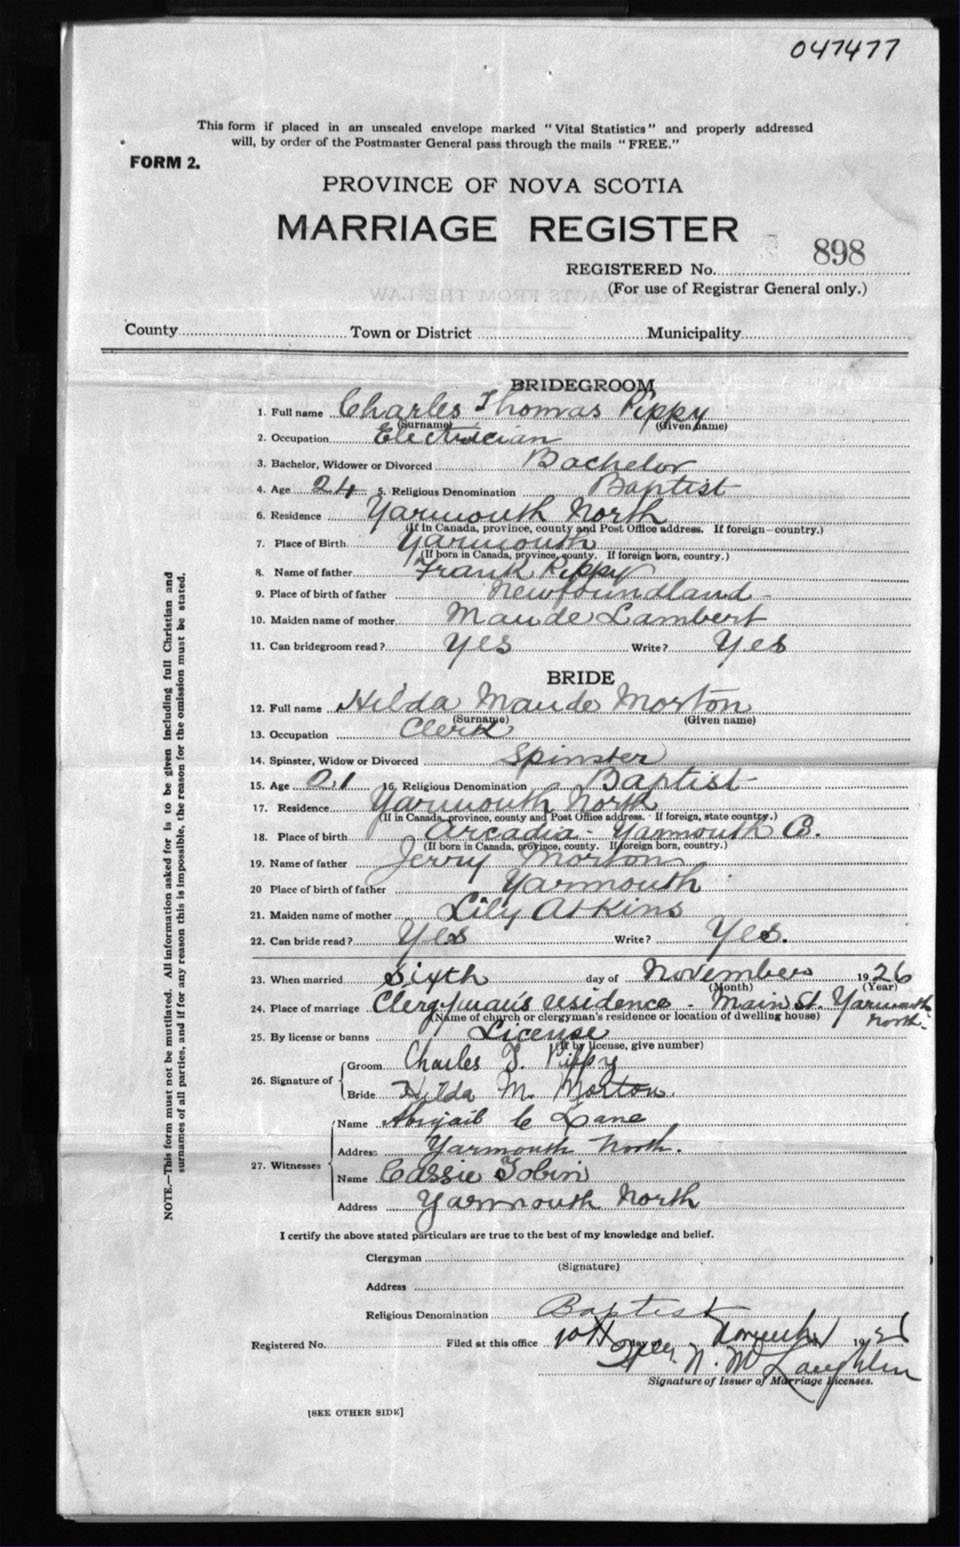 047477
This form if placed in an unsealed envelope marked "Vital Statistics" and properly addressed
will, by order of the Postmaster General pass through the mails "FREE."
FORM 2.
PROVINCE OF NOVA SCOTIA
MARRIAGE REGISTER
REGISTERED No. 898
(For use of Registrar General only.)
County Town or District Municipality
BRIDEGROOM
1. Full name Charles Thomas Pippy
(Surname) (Given name)
2. Occupation Electrician
3. Bachelor, Widower or Divorced Bachelor
4. Age 24 5. Religious Denomination Baptist
6. Residence Yarmouth North
(If in Canada, province, county and Post Office address. If foreign—country.)
7. Place of Birth Yarmouth
(If born in Canada, province, county. If foreign born, country.)
8. Name of father Frank Pippy
9. Place of birth of father Newfoundland
10. Maiden name of mother Maude Lambert
11. Can bridegroom read? Yes Write? Yes
BRIDE
12. Full name Hilda Maude Morton
(Surname) (Given name)
13. Occupation Clerk
14. Spinster, Widow or Divorced Spinster
15. Age 21 16. Religious Denomination Baptist
17. Residence Yarmouth North
(If in Canada, province, county and Post Office address. If foreign, state country.)
18. Place of birth Arcadia - Yarmouth
(If born in Canada, province, county. If foreign born, country.)
19. Name of father Jerry Morton
20 Place of birth of father Yarmouth
21. Maiden name of mother Lily Atkins
22. Can bride read? Yes Write? Yes.
23. When married Sixth day of November 1926
(Month) (Year)
24. Place of marriage Clergyman's residence - Main St. Yarmouth
North.
(Name of church or clergyman's residence or location of dwelling house)
25. By license or banns License
(If by license, give number)
26. Signature of Groom Charles T. Pippy
Bride Hilda M. Morton.
27. Witnesses Name Abigail C Lane
Address Yarmouth North.
Name Cassie Tobin
Address Yarmouth North
I certify the above stated particulars are true to the best of my knowledge and belief.
Clergyman
(Signature)
Address
Religious Denomination Baptist
Registered No. Filed at this office 10th day of November 1926
N. McLaughlin
Signature of Issuer of Marriage Licenses.
[SEE OTHER SIDE]
NOTE.—This form must not be mutilated. All information asked for is to be given including full Christian and
surnames of all parties, and if for any reason this is impossible, the reason for the omission must be stated.